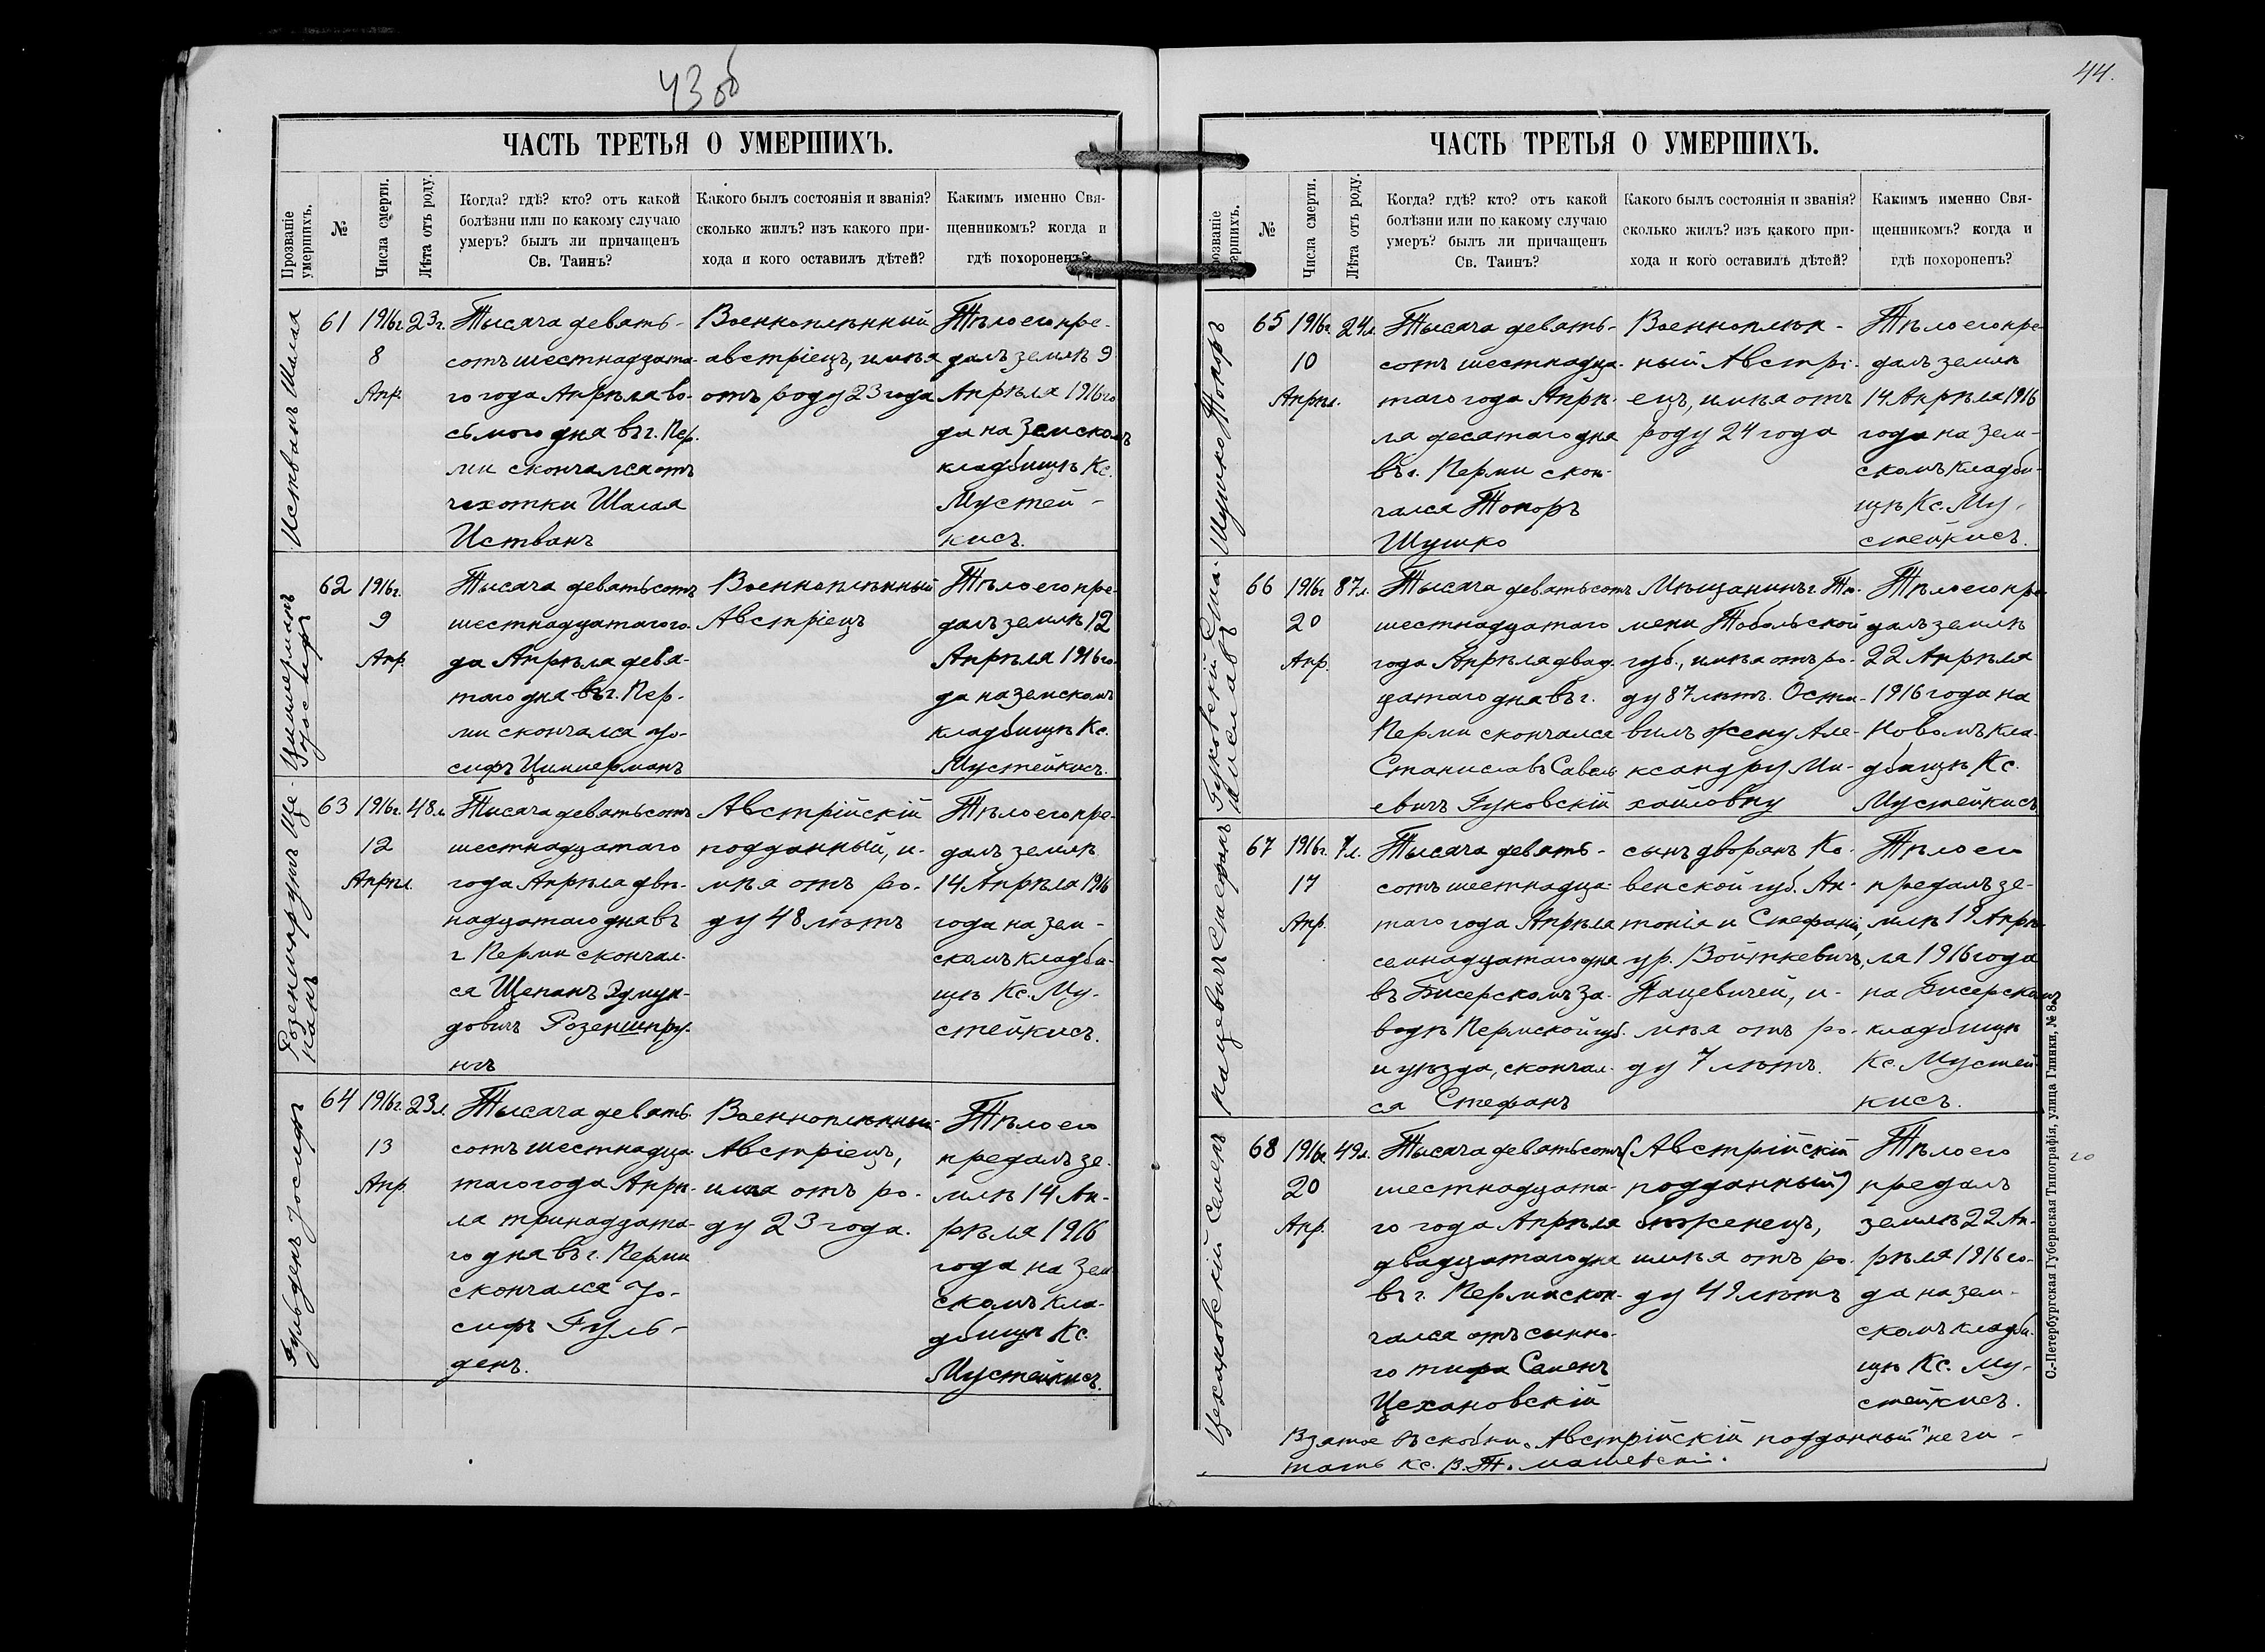 43 об
ЧАСТЬ ТРЕТЬЯ О УМЕРШИХЪ.
Прозваніе умершихъ.
№
Числа смерти.
Лѣта отъ роду.
Когда? гдѣ? кто? отъ какой
болѣзни или по какому случаю
умеръ? былъ ли причащенъ
Св. Таинъ?
Какого былъ состоянія и званія?
сколько жилъ? изъ какого при-
хода и кого оставилъ дѣтей?
Какимъ именно Свя-
щенникомъ? когда и
гдѣ похороненъ?
Иствaнъ Шалая
61
1916г.
8
Апр.
23г.
Тысяча девять-
сотъ шестнадцата-
го года Апрѣля во-
сьмого дня въ г. Пер-
ми скончался отъ
чахотки Шалая
Истванъ
Военноплѣнный
австріецъ, имѣя
отъ роду 23 года
Тѣло его пре-
далъ землѣ 9
Апрѣля 1916 го
да на Земскомъ
кладбищѣ Кс.
Мустей-
кисъ.
Циммерманъ
Іосифъ
62
1916г.
9
Апр.
Тысяча девятьсотъ
шестнадцатаго го-
да Апрѣля девя-
таго дня въ г. Пер-
ми скончался Іо-
сифъ Циммерманъ
Военноплѣнный
Австріецъ
Тѣло его пре-
далъ землѣ 12
Апрѣля 1916 го-
да на земскомъ
кладбищѣ Кс.
Мустейкисъ.
Розенширунтъ Ще-
панъ
63
1916г.
12
Апрѣл.
48л.
Тысяча девятьсотъ
шестнадцатаго
года Апрѣля двѣ-
надцатаго дня въ
г Перми скончал-
ся Щепанъ Эдмун-
довичъ Розенширу-
нтъ
Австрійскій
подданный, и-
мѣя отъ ро-
ду 48 лѣтъ
Тѣло его пре-
далъ землѣ
14 Апрѣля 1916
года на зем-
скомъ кладби-
щѣ Кс. Му-
стейкисъ.
Гульденъ Іосифъ
64
1916г.
13
Апр.
23л.
Тысяча девять-
сотъ шестнадца-
таго года Апрѣ-
ля тринадцата-
го дня въ г. Перми
скончался Іо-
сифъ Гуль-
денъ.
Военноплѣнный
Австріецъ,
имѣя отъ ро-
ду 23 года.
Тѣло его
предалъ зе-
млѣ 14 Ап-
рѣля 1916
года на Зем-
скомъ кла-
дбищѣ Кс.
Мустейкисъ.
44.
ЧАСТЬ ТРЕТЬЯ О УМЕРШИХЪ.
№
Числа смерти.
Лѣта отъ роду.
Когда? гдѣ? кто? отъ какой
болѣзни или по какому случаю
умеръ? былъ ли причащенъ
Св. Таинъ?
Какого былъ состоянія и званія?
сколько жилъ? изъ какого при-
хода и кого оставилъ дѣтей?
Какимъ именно Свя-
щенникомъ? когда и
гдѣ похороненъ?
Шушко Топоръ
65
1916г.
10
Апрѣл.
24л.
Тысяча девять-
сотъ шестнадца-
таго года Апрѣ-
ля десятаго дня
въ г. Перми скон-
чался Топоръ
Шушко
Военноплѣн-
ный Австрі-
ецъ, имѣя отъ
роду 24 года
Тѣло его пре-
далъ землѣ
14 Апрѣля 1916
года на Зем-
скомъ кладби-
щѣ Кс. Му-
стейкисъ.
Гуковскій Ста-
ниславъ
66
1916г
20
Апр.
87л.
Тысяча девятьсотъ
шестнадцатаго
года Апрѣля двад-
цатаго дня въ г.
Перми скончался
Станиславъ Савель
евичъ Гуковскій
Мѣщанинъ г. Тю-
мени Тобольской
губ., имѣя отъ ро-
ду 87 лѣтъ. Оста-
вилъ жену Але-
ксандру Ми-
хайловну
Тѣло его пре-
далъ землѣ
22 Апрѣля
1916 года на
Новомъ кла-
дбищѣ Кс.
Мустейкисъ
Нацевичъ Стефанъ
67
1916г.
17
Апр.
7л.
Тысяча девять-
сотъ шестнадца-
таго года Апрѣля
семнадцатаго дня
въ Бисерскомъ за-
водѣ Пермской губ.
и уѣзда, скончал-
ся Стефанъ
сынъ дворянъ Ко-
венской губ. Ан-
тонія и Стефаніи,
ур. Войткевичъ,
Нацевичей, и-
мѣя отъ ро-
ду 7 лѣтъ.
Тѣло его
предалъ зе-
млѣ 19 Апрѣ-
ля 1916 года
на Бисерскомъ
кладбищѣ
Кс. Мустей-
кисъ.
Цехановскій Семенъ
68
1916г.
20
Апр.
49л.
Тысяча девятьсотъ
шестнадцата-
го года Апрѣля
двадцатаго дня
въ г. Перми скон-
чался отъ сыпно-
го тифа Семенъ
Цехановскій
(Австрійскій
подданный)
бѣженецъ,
имѣя отъ ро-
ду 49 лѣтъ
Тѣло его
предалъ
землѣ 22 Ап-
рѣля 1916 го-
да на зем-
скомъ кладби-
щѣ Кс. Му-
стейкисъ.
Взятое въ скобки „Австрійскій подданный" не чи-
тать Кс. В.
С.-Петербургская Губернская Типографія, улица Глинки, № 8.
20